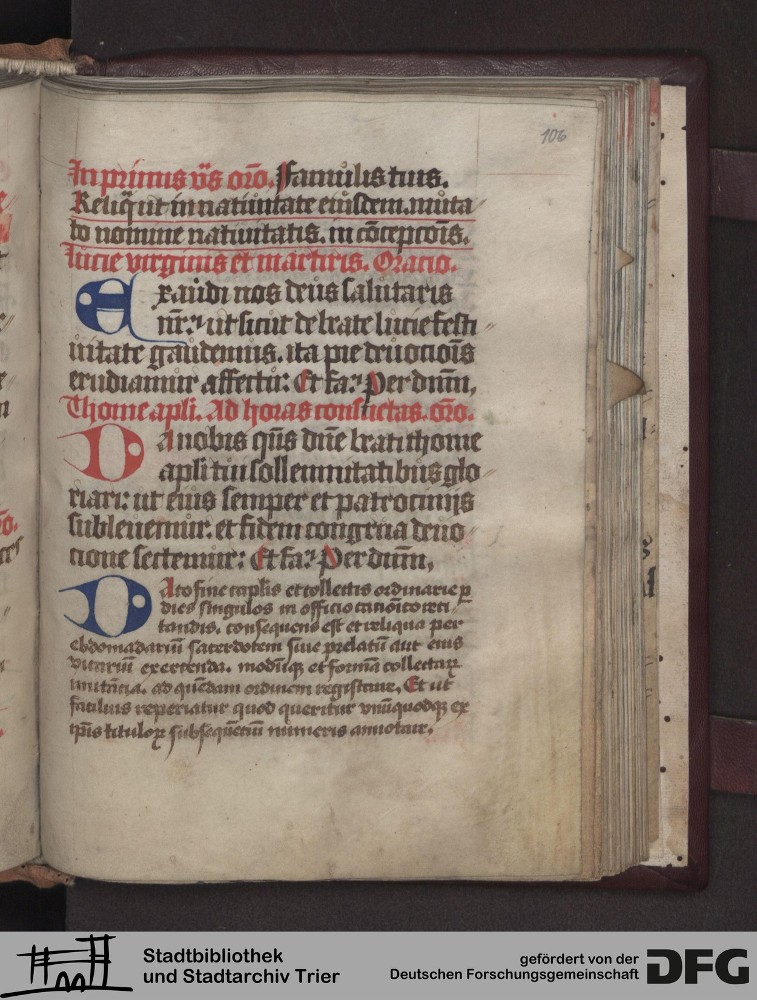 106
In primis vs̃ oro̅. Famulis tuis.
Reliq̃ ut in natiuitate eiusdem. muta
to nomine natiuitatis. in co̅cepco̅is.
lucie virginis et martiris. Oracio.
Exaudi nos deus salutaris
nr̅: ut sicut de beate lucie festi
uitate gaudemus. ita pie deuocio̅is
erudiamur affectu: Et fa: Per dnu̅m,
Thome apli. Ad horas consuetas. oro̅.
Da nobis qu̅s dn̅e beati thome
apli tui sollemnitatibus glo
riari: ut eius semper et patrocinijs
subleuemur. et fidem congrua deuo
tione sectemur: Et fa: Per dnu̅m,
Dato fine cap̅lis et collectis ordinarie ꝑ
dies singulos in officio canonico reci
tandis. consequens est et reliqua per
ebdomadariu̅ sacerdotem siue prelatu̅ aut eius
vicariu̅ exercenda. modu̅qꝫ et forma̅ collectaꝝ
ad que̅dam ordinem registrare. Et ut
facilius reperiatur quod queritur vnu̅quodqꝫ ex
ip̅is tituloꝝ subseque̅ciu̅ numeris annotare.
Stadtbibliothek
und Stadtarchiv Trier
gefördert von der
Deutschen Forschungsgemeinschaft
DFG